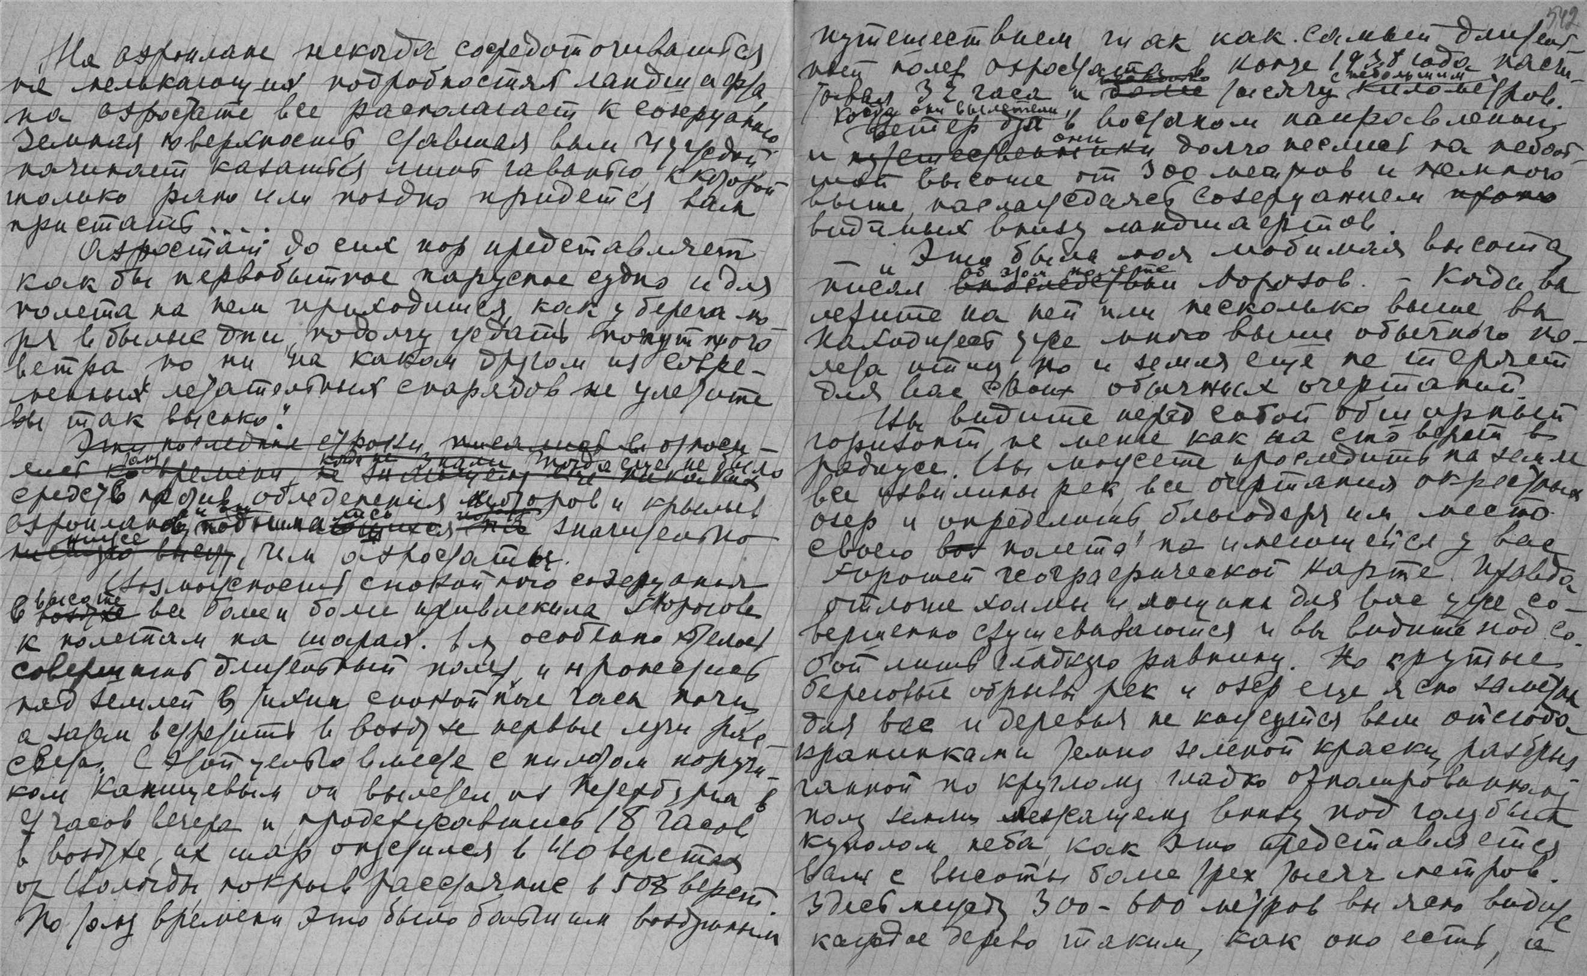 На аэроплане некогда сосредоточиваться
на мелькающих подробностях ландшафта
на аэростате все располагает к созерцанию
Земная поверхность ставшая вам чуждой
начинает казаться лишь гаванью к которой
только рано или поздно придется вам
пристать....
Аэростат до сих пор представляет
как бы первобытное парусное судно и для
полета на нем приходится, как у берега мо-
ря в былые дни, подолгу ждать попутного
ветра но ни на каком другом из совре-
менных летательных снарядов не улетите
вы так высоко".
Эти последние строки относи-
лись ко времени когда еще не было
средств против обледенения моторов и крыльев
аэропланов и они поднима лись значительно
ниже, чем аэростаты.
Возможность спокойного созерцания
в высоте все более и более привлекала Морозова
к полетам на шарах. Ему особенно хотелось
совершить длительный полет и пронестись
над землей в тихии спокойные часы ночи
а затем встретить в воздухе первые лучи рас-
света. С этой целью вместе с пилотом поручи-
ком Канищевым он вылетел из Петербурга в
часов вечера и продержавшись 18 часов
в воздухе, их шар опустился в 40 верстах
от Вологды, покрыв расстояние в 508 верст.
По тому времени это было большим воздушным
542
путешествием так как самый длитель-
ный полет аэростата в конце 1938 года насчи-
тывал 32 часа и тысячу с небольшим километров.
Когда они вылетели
Ветер был в восточном направлении
и они долго неслись на неболь-
шой высоте от 300 метров и немного
выше, наслаждаясь созерцанием
видимых внизу ландшафтов.
— „Это была моя любимая высота
писал об этом полете Морозов. — Когда вы
летите на ней или несколько выше вы
находитесь уже много выше обычного по-
лета птиц но и земля еще не теряет
для вас своих обычных очертаний.
Вы видите перед собой обширный
горизонт не менее как на сто верст в
радиусе. Вы можете проследить на земле
все извилины рек, все очертания окрестных
озер и определить благодаря им место
своего полета на имеющейся у вас
хорошей географической карте. Правда
отлогие холмы и лощины для вас уже со-
вершенно стушевываются и вы видите под со-
бой лишь гладкую равнину. Но крутые
береговые обрывы рек и озер еще ясно заметны
для вас и деревья не кажутся вам отсюда
крапинками темно зеленой краски, разбрыз
ганной по круглому гладко отполированному
полу земли лежащему внизу под голубым
куполом неба, как это представляется
вам с высоты более трех тысяч метров.
Здесь между 300-600 метров вы ясно видите
каждое дерево таким, как оно есть, и